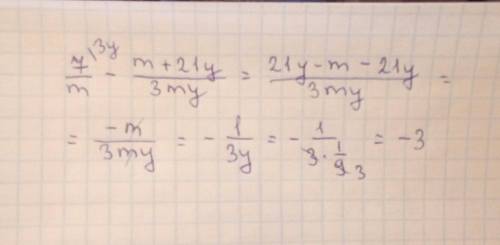 7/m \3y - (m + 21y)/(3my) = (21y - m - 21y)/(3my) =
= (-m)/(3my) = - 1/(3y) = - 1/(3 · 1/9 3) = -3